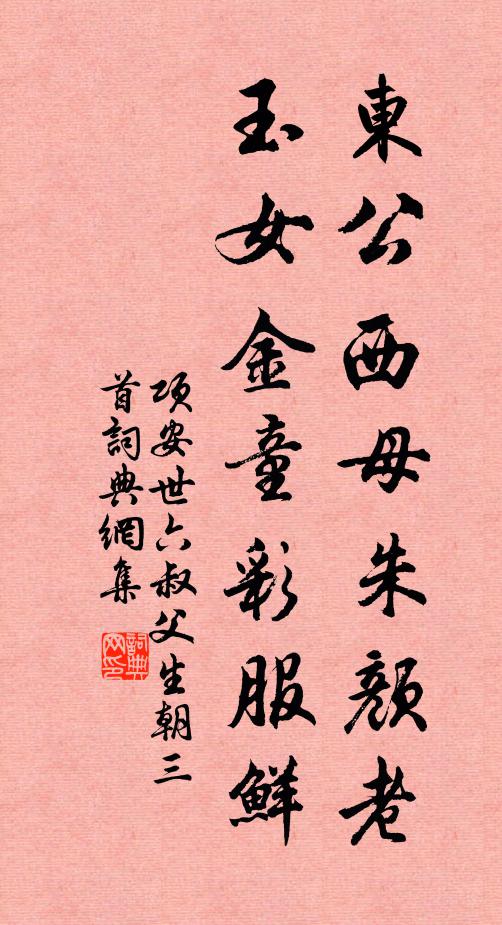 東公西母朱顏老
玉女金童彩服鮮
項安世六叔父生朝三
首詞典網集
詞典
网印